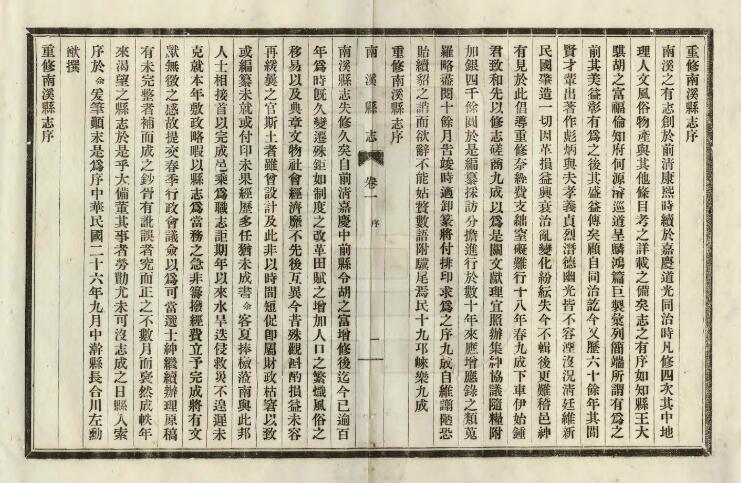 重修南溪縣志序
南溪之有志創於前清康熙時續於嘉慶道光同治時凡修四次其中地
理人文風俗物產與其他條目考之詳載之備矣志之有序如知縣王大
騏胡之富福倫知府何源濬巡道呈麟鴻篇巨製彙列簡端所謂有為之
前其美益彰有為之後其盛益傳矣顧自同治訖今又歷六十餘年其間
賢才輩出著作彪炳與夫孝義貞烈潛德幽光皆不容湮沒況清廷維新
民國肇造一切因革損益興衰治亂變化紛紜失今不輯後更難稽邑紳
有見於此倡導重修奈經費支絀窒礙難行十八年春九成下車伊始鍾
君致和先以修志磋商九成以為是關文獻理宜照辦集紳協議隨糧附
加銀四千餘圓於是編纂採訪分擔進行於數十年來應增應錄之類蒐
羅略盡閱十餘月告竣時適卸篆將付排印求為之序九成自維譾陋恐
貽續貂之誚而欲辭不能姑贅數語附驥尾焉民十九邛崍樂九成
南溪縣志
卷一
序
一
重修南溪縣志序
南溪縣志失修久矣自前清嘉慶中前縣令胡之富增修後迄今已逾百
年為時旣久變遷殊鉅如制度之改革田賦之增加人口之繁熾風俗之
移易以及典章文物社會經濟靡不先後互異今昔殊觀斟酌損益未容
再緩曩之官斯土者雖曾設計及此非以時間短促卽屬財政枯窘以致
或編纂未就或付印未果經歷多任猶未成書余客夏捧檄蒞南與此邦
人士相接首以完成邑乘為職志詎期年以來水旱迭侵救災不遑遲未
克就本年敷政略暇以縣志為當務之急非籌撥經費立予完成將有文
獻無徵之感故提交春季行政會議僉以為可當選士紳繼續辦理原稿
有未完整者補而成之鈔胥有訛誤者究而正之不數月而裒然成帙年
來渴望之縣志於是乎大備董其事者勞勩尤未可沒志成之日縣人索
序於余爰筆顚末是為序中華民國二十六年九月中澣縣長合川左勳
猷撰
重修南溪縣志序